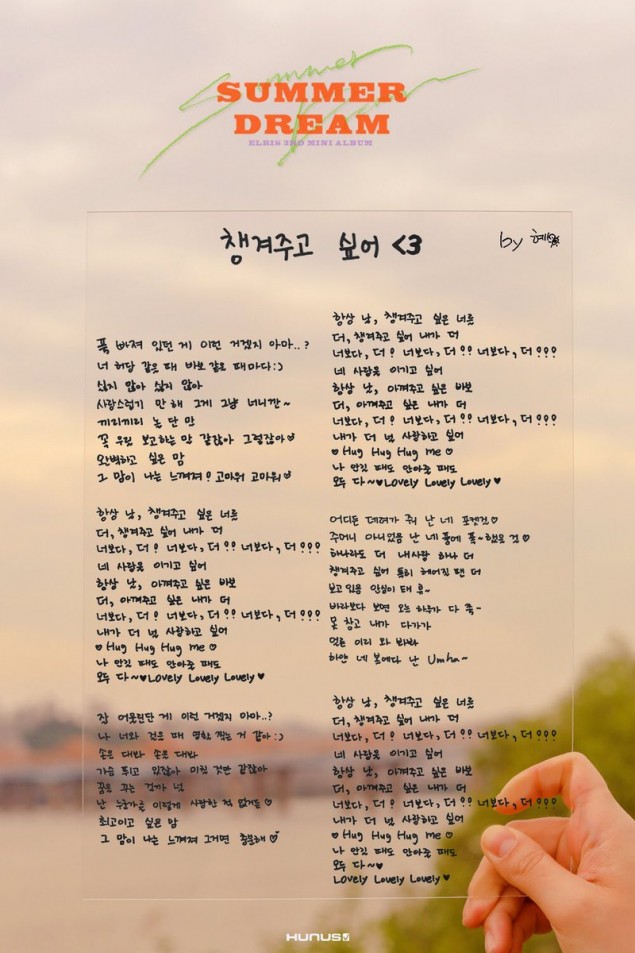 Summer Dream
SUMMER
DREAM
ELRIS 3RD MINI ALBUM
챙겨주고 싶어 <3
by 혜성
푹 빠져 있던 게 이런 거겠지 아마..?
너 허당 같을 때 바보 같을 때마다:)
싫지 않아 싫지 않아
사랑스럽기 만 해 그게 그냥 너니깐~
끼리끼리 논 단 말
꼭 우릴 보고하는 말 같잖아 그렇잖아♡
완벽하고 싶은 맘
그 맘이 나는 느껴져! 고마워 고마워♡
항상 난, 챙겨주고 싶은 너를
더, 챙겨주고 싶어 내가 더
너보다, 더? 너보다, 더?? 너보다, 더???
네 사랑을 이기고 싶어
항상 난, 아껴주고 싶은 바보
더, 아껴주고 싶은 내가 더
너보다, 더? 너보다, 더?? 너보다, 더???
내가 더 널 사랑하고 싶어
♡Hug Hug Hug me♡
나 안길 때도 안아줄 때도
모두 다~♥Lovely Lovely Lovely♥
잘 어울린단 게 이런 거겠지 아마..?
나 너와 걷을 때 영화 찍는 거 같아:)
손을 대봐 손을 대봐
가슴 뛰고 있잖아 미칠 것만 같잖아
꿈을 꾸는 걸까 넌
난 누군가를 이렇게 사랑한 적 없거든♡
최고이고 싶은 맘
그 맘이 나는 느껴져 그거면 충분해♡
항상 난, 챙겨주고 싶은 너를
더, 챙겨주고 싶어 내가 더
너보다, 더? 너보다, 더?? 너보다, 더???
네 사랑을 이기고 싶어
항상 난, 아껴주고 싶은 바보
더, 아껴주고 싶은 내가 더
너보다, 더? 너보다, 더?? 너보다, 더???
내가 더 널 사랑하고 싶어
♡Hug Hug Hug me♡
나 안길 때도 안아줄 때도
모두 다~♥Lovely Lovely Lovely♥
어디든 데려가 줘 난 네 포켓걸♡
주머니 아니었음 난 네 품에 폭~했을 걸♡
하나라도 더 내사랑 하나 더
챙겨주고 싶어 특히 헤어질 땐 더
보고 있음 안심이 돼 휴~
바라보다 보면 오늘 하루가 다 훅~
못 참고 내가 다가가
얼른 이리 와 봐봐
하얀 네 볼에다 난 Umha~
항상 난, 챙겨주고 싶은 너를
더, 챙겨주고 싶어 내가 더
너보다, 더? 너보다, 더?? 너보다, 더???
네 사랑을 이기고 싶어
항상 난, 아껴주고 싶은 바보
더, 아껴주고 싶은 내가 더
너보다, 더? 너보다, 더?? 너보다, 더???
내가 더 널 사랑하고 싶어
♡Hug Hug Hug me♡
나 안길 때도 안아줄 때도
모두 다~♥
Lovely Lovely Lovely♥
HUNUS